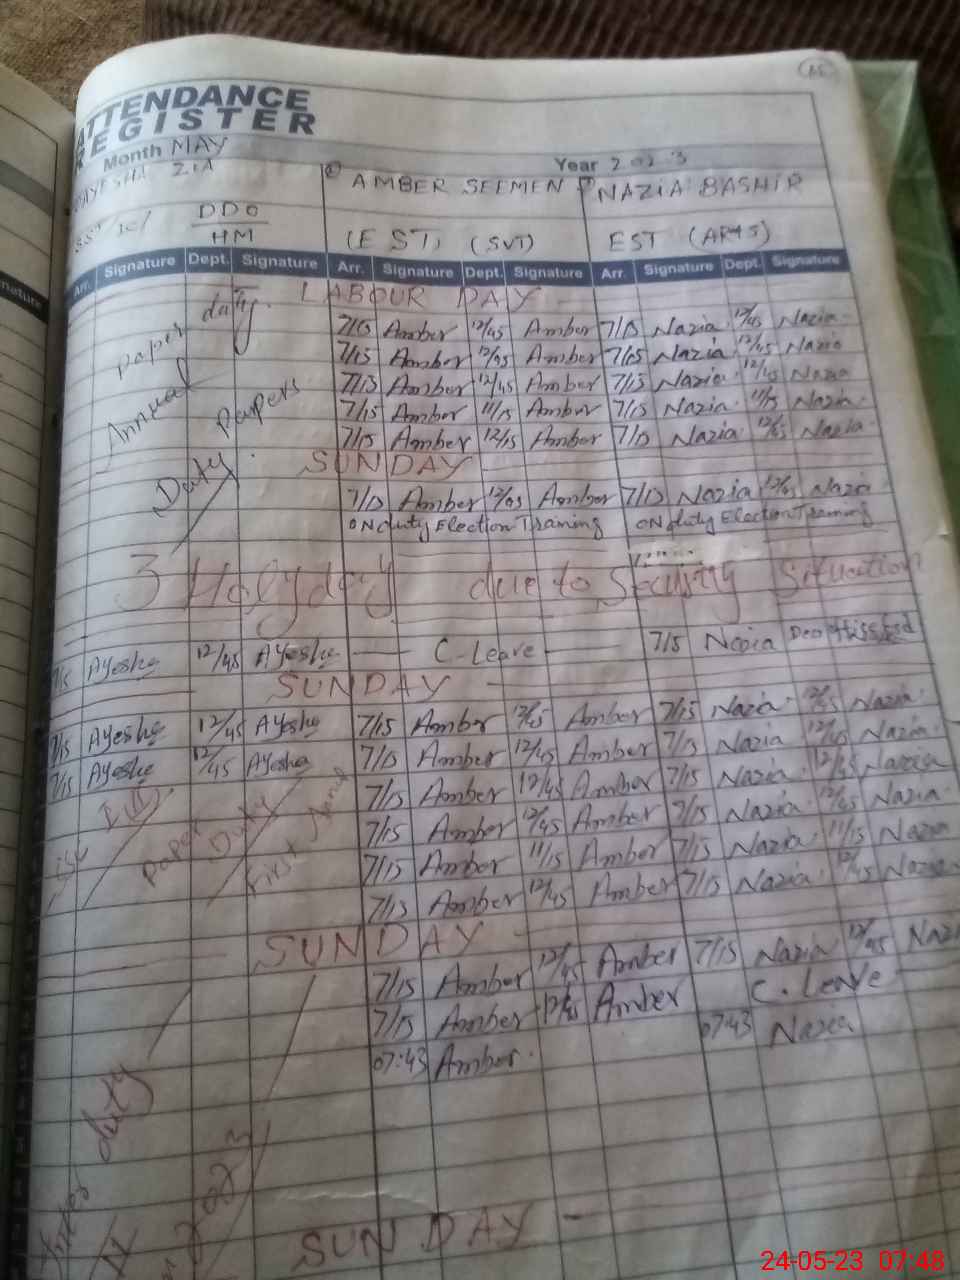 ATTENDANCE
REGISTER
Month MAY Year 2023
AYESHA ZIA AMBER SEEMEN NAZIA BASHIR
DDO
HM (EST) (SVT) EST (ARTS)
Arr. Signature Dept. Signature Arr. Signature Dept. Signature Arr. Signature Dept. Signature
LABOUR DAY
7/15 Amber 12/45 Amber 7/15 Nazia 12/45 Nazia
7/15 Amber 12/45 Amber 7/15 Nazia 12/45 Nazia
7/15 Amber 12/45 Amber 7/15 Nazia 12/45 Nazia
7/15 Amber 11/15 Amber 7/15 Nazia 11/15 Nazia
7/15 Amber 12/15 Amber 7/15 Nazia 12/45 Nazia
paper duty
Annual papers
Duty
SUNDAY
7/15 Amber 12/45 Amber 7/15 Nazia 12/45 Nazia
ON duty Election Training ON duty Election Training
3 Holyday due to Security Situation
7/15 Ayesha 12/45 Ayesha C-Leave 7/15 Nazia
SUNDAY
7/15 Ayesha 12/45 Ayesha 7/15 Amber 12/45 Amber 7/15 Nazia 12/45 Nazia
7/15 Ayesha 12/45 Ayesha 7/15 Amber 12/45 Amber 7/15 Nazia 12/45 Nazia
7/15 Amber 12/45 Amber 7/15 Nazia 12/45 Nazia
7/15 Amber 12/45 Amber 7/15 Nazia 12/45 Nazia
7/15 Amber 11/15 Amber 7/15 Nazia 11/15 Nazia
7/15 Amber 12/45 Amber 7/15 Nazia 12/45 Nazia
Paper Duty First
SUNDAY
7/15 Amber 12/45 Amber 7/15 Nazia 12/45 Nazi
7/15 Amber 12/45 Amber C. Leave
07:43 Amber 07:43 Nazia
duty
2023
SUNDAY
24-05-23 07:48